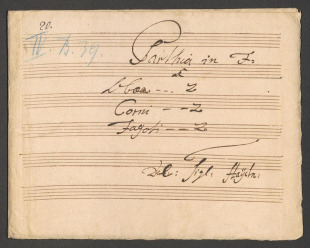 20.
IV. B. 39.
Parthia in F.
a
Oboa --- 2
Corni - - 2
Fagoti - - 2
Del: Sigl: Haydn: